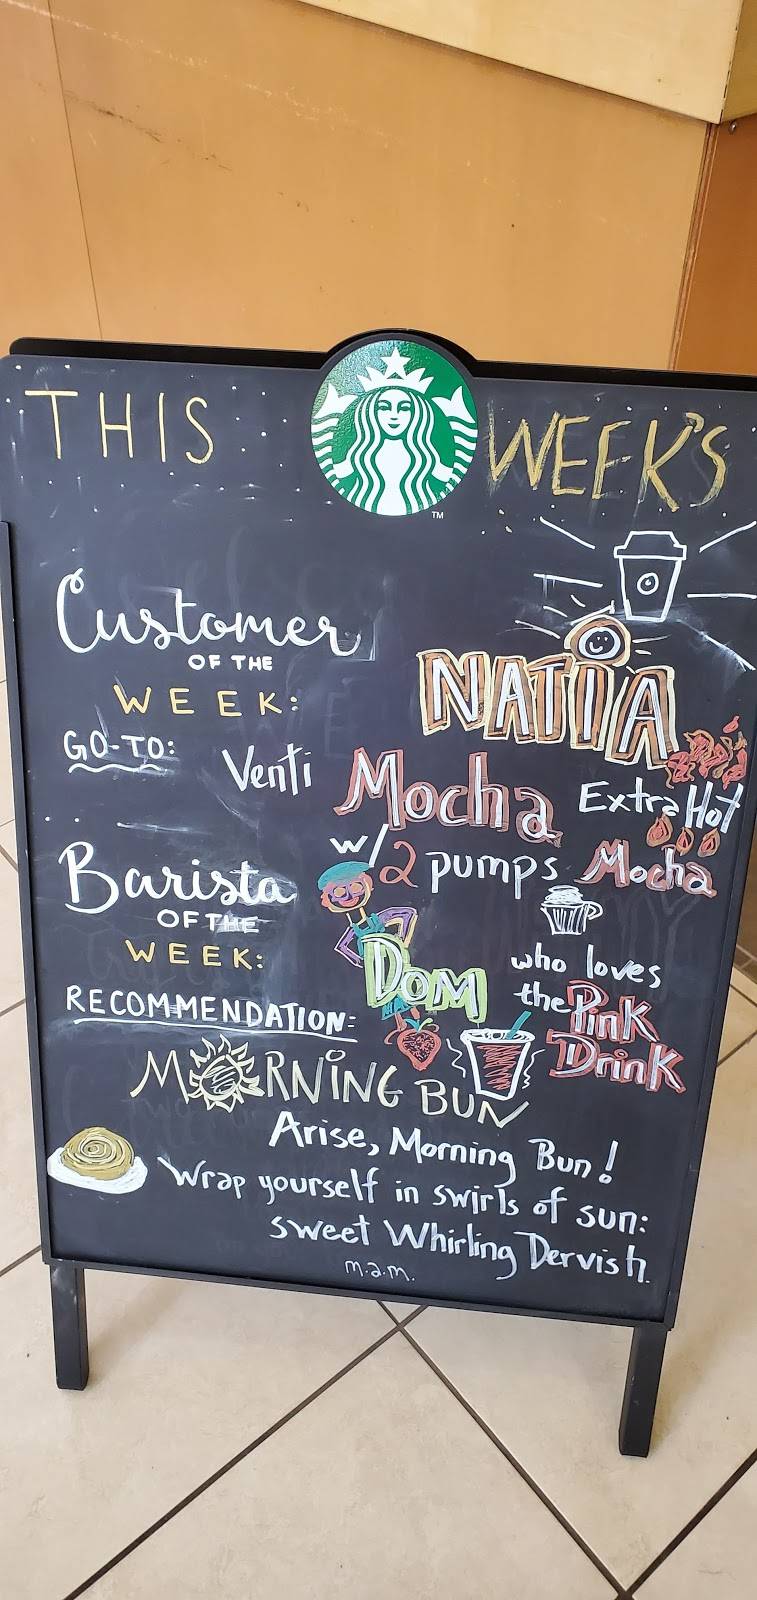 THIS WEEK'S
TM
Customer
OF THE
WEEK:
NATIA
GO-TO: Venti Mocha Extra Hot
w/ 2 pumps Mocha
Barista
OF THE
WEEK:
DOM
who loves
the Pink
Drink
RECOMMENDATION:
MORNING BUN
Arise, Morning Bun!
Wrap yourself in swirls of sun:
sweet Whirling Dervish.
m.a.m.